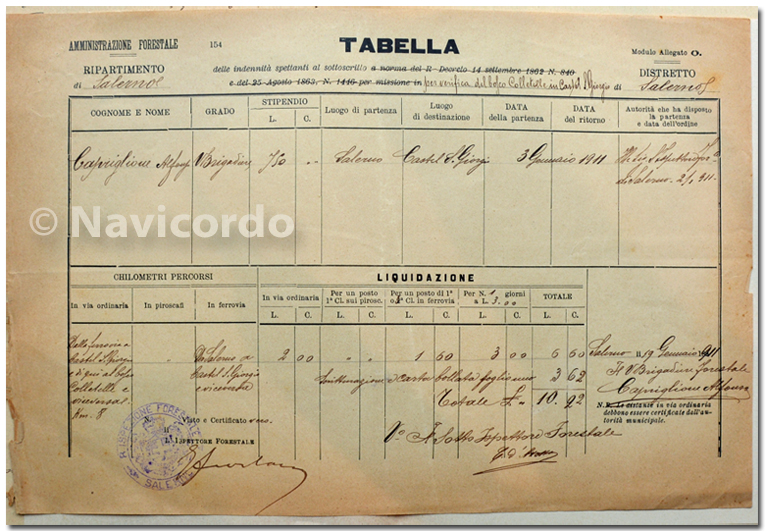 AMMINISTRAZIONE FORESTALE
154
TABELLA
Modulo Allegato O.
RIPARTIMENTO
di Salerno
delle indennità spettanti al sottoscritto a norma del R. Decreto 14 settembre 1862 N. 840
e del 25 Agosto 1863, N. 1446 per missione in per verifica del bosco Colletelle in Castel S. Giorgio
DISTRETTO
di Salerno
COGNOME E NOME
GRADO
STIPENDIO
L. C.
Luogo di partenza
Luogo
di destinazione
DATA
della partenza
DATA
del ritorno
Autorità che ha disposto
la partenza
e data dell'ordine
Capriglione Alfonso
V Brigadiere
750
Salerno
Castel S. Giorgio
3 Gennaio 1911
Salerno
© Navicordo
CHILOMETRI PERCORSI
LIQUIDAZIONE
In via ordinaria
In piroscafi
In ferrovia
In via ordinaria
Per un posto
1ª Cl. sui pirosc.
Per un posto di 1ª
o 2ª Cl. in ferrovia
Per N. 1 giorni
a L. 3.00
TOTALE
L. C. L. C. L. C. L. C. L. C.
Dalla ferrovia a
Castel S. Giorgio
e di qui al bosco
Colletelle e
viceversa
Km. 8
Da Salerno a
Castel S. Giorgio
e viceversa
2 00 " " 1 60 3 00 6 60
carta bollata foglio uno 3 62
Totale L. 10. 22
Salerno li 19 Gennaio 1911
Il V Brigadiere forestale
Capriglione Alfonso
N. B. Le distanze in via ordinaria
debbono essere certificate dall'au-
torità municipale.
N. Visto e Certificato vero.
L'ISPETTORE FORESTALE
ISPEZIONE FORESTALE
SALERNO
Vº Il Sotto Ispettore Forestale